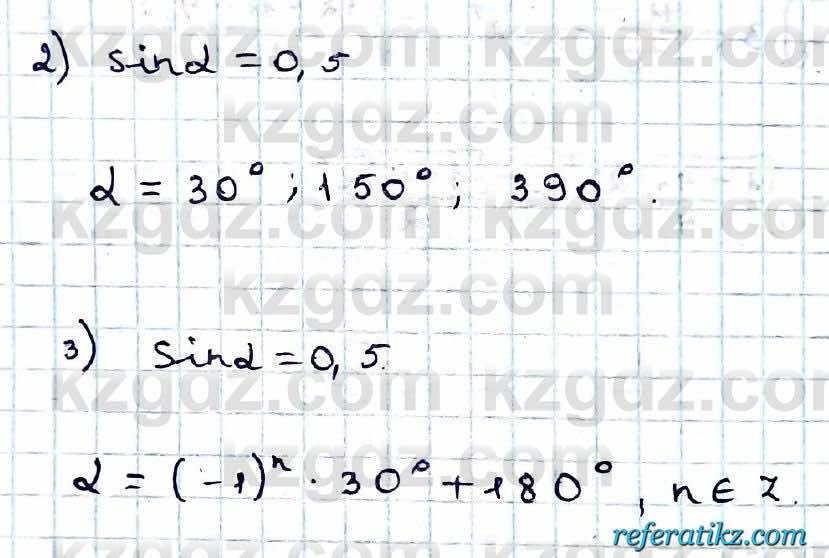 2) sinα = 0,5
α = 30°; 150°; 390°.
3) sinα = 0,5.
α = (-1)ⁿ · 30° + 180°, n ∈ Z.
kzgdz.com
referatikz.com